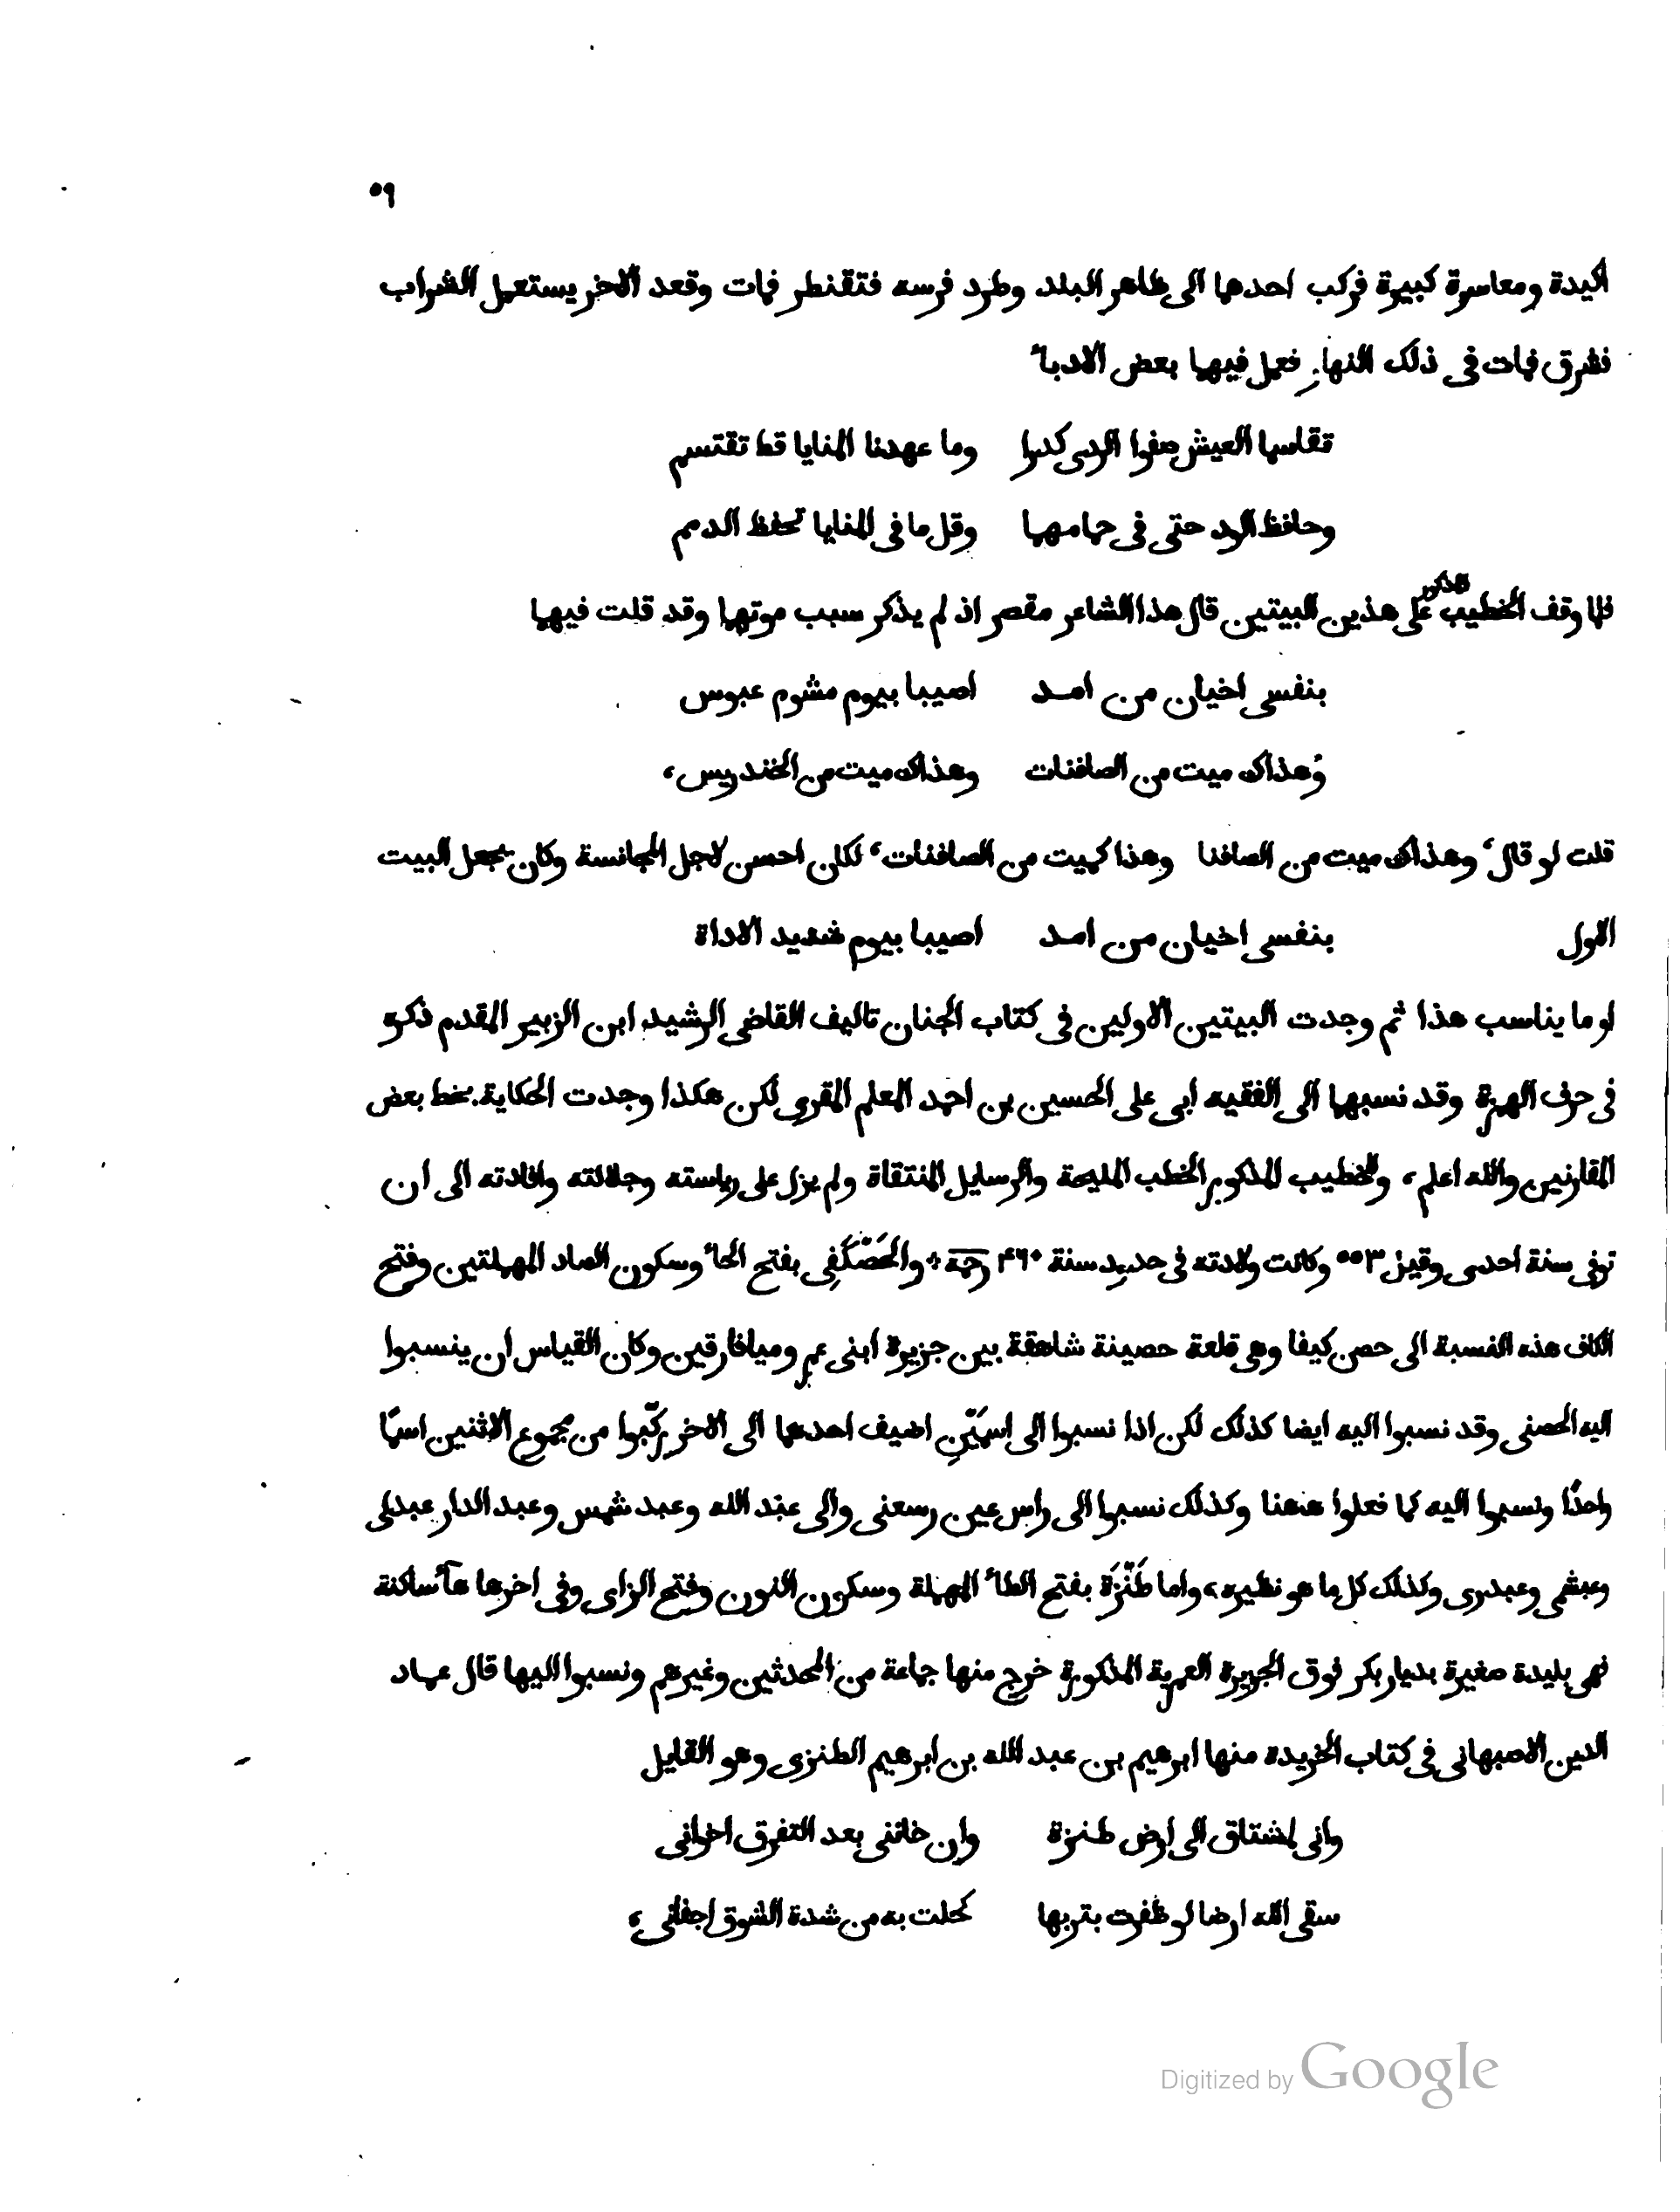 ٥٩
اكيدة ومعاسرة كبيرة فركب احدهما الى ظاهر البلد وطرد فرسه فتقنطر فمات وقعد الاخر يستعمل الشراب
فشرق فمات فى ذلك النهار فعمل فيهما بعض الادباء
تقاسما العيش صفوا الردى كدرا وما عهدنا المنايا قط تقتسم
وحافظ الود حتى فى حمامهما وقل ما فى المنايا تحفظ الدمم
فلما وقف الخطيب المذكور على هذين البيتين قال هذا الشاعر مقصر اذ لم يذكر سبب موتهما وقد قلت فيهما
بنفسى اخيان من امد اصيبا بيوم مشوم عبوس
وُهذاك ميت من الصافنات وهذاك ميت من الخندريس،
قلت لو قال، وهذاك ميت من الصافنا وهذا كميت من الصافنات، لكان احسن لاجل المجانسة وكان يجعل البيت
الاول بنفسى اخيان من امد اصيبا بيوم شديد الاداة
او ما يناسب هذا ثم وجدت البيتين الاولين فى كتاب الجنان تاليف القاضى الرشيد ابن الزبير المقدم ذكره
فى حرف الهمزة وقد نسبهما الى الفقيه ابى على الحسين بن احمد المعلم المقرى لكن هكذا وجدت الحكاية بخط بعض
المقارنين والله اعلم، وللخطيب المذكور الخطب المليحة والرسايل المنتقاة ولم يزل على رياسته وجلالته وافادته الى ان
توفى سنة احدى وقيل ٥٥٣ وكانت ولادته فى حديد سنة ٤٦٠ رحمه * والحَصْكَفِى بفتح الحاء وسكون الصاد المهملتين وفتح
الكاف هذه النسبة الى حصن كيفا وهى قلعة حصينة شاهقة بين جزيرة ابنى عمر وميافارقين وكان القياس ان ينسبوا
اليه الحصنى وقد نسبوا اليه ايضا كذلك لكن اذا نسبوا الى اسمَيْنِ اضيف احدهما الى الاخر ركّبوا من مجموع الاثنين اسمًا
واحدًا ونسبوا اليه كما فعلوا ههنا وكذلك نسبوا الى راس عين رسعنى والى عبد الله وعبد شمس وعبد الدار عبدلى
وعبشمى وعبدرى وكذلك كل ما هو نظيره، واما طَنْزَة بفتح الطاء المهملة وسكون النون وفتح الزاى وفى اخرها هآء ساكنة
فهى بليدة صغيرة بديار بكر فوق الجزيرة العمرية المذكورة خرج منها جماعة من المحدثين وغيرهم ونسبوا اليها قال عماد
الدين الاصبهانى فى كتاب الخريدة منها ابرهيم بن عبد الله بن ابرهيم الطنزى وهو القايل
وانى لمشتاق الى ارض طنزة وان خاننى بعد التفرق اخوانى
سقى الله ارضا لو ظفرت بتربها كحلت به من شدة الشوق اجفانى،
Digitized by Google